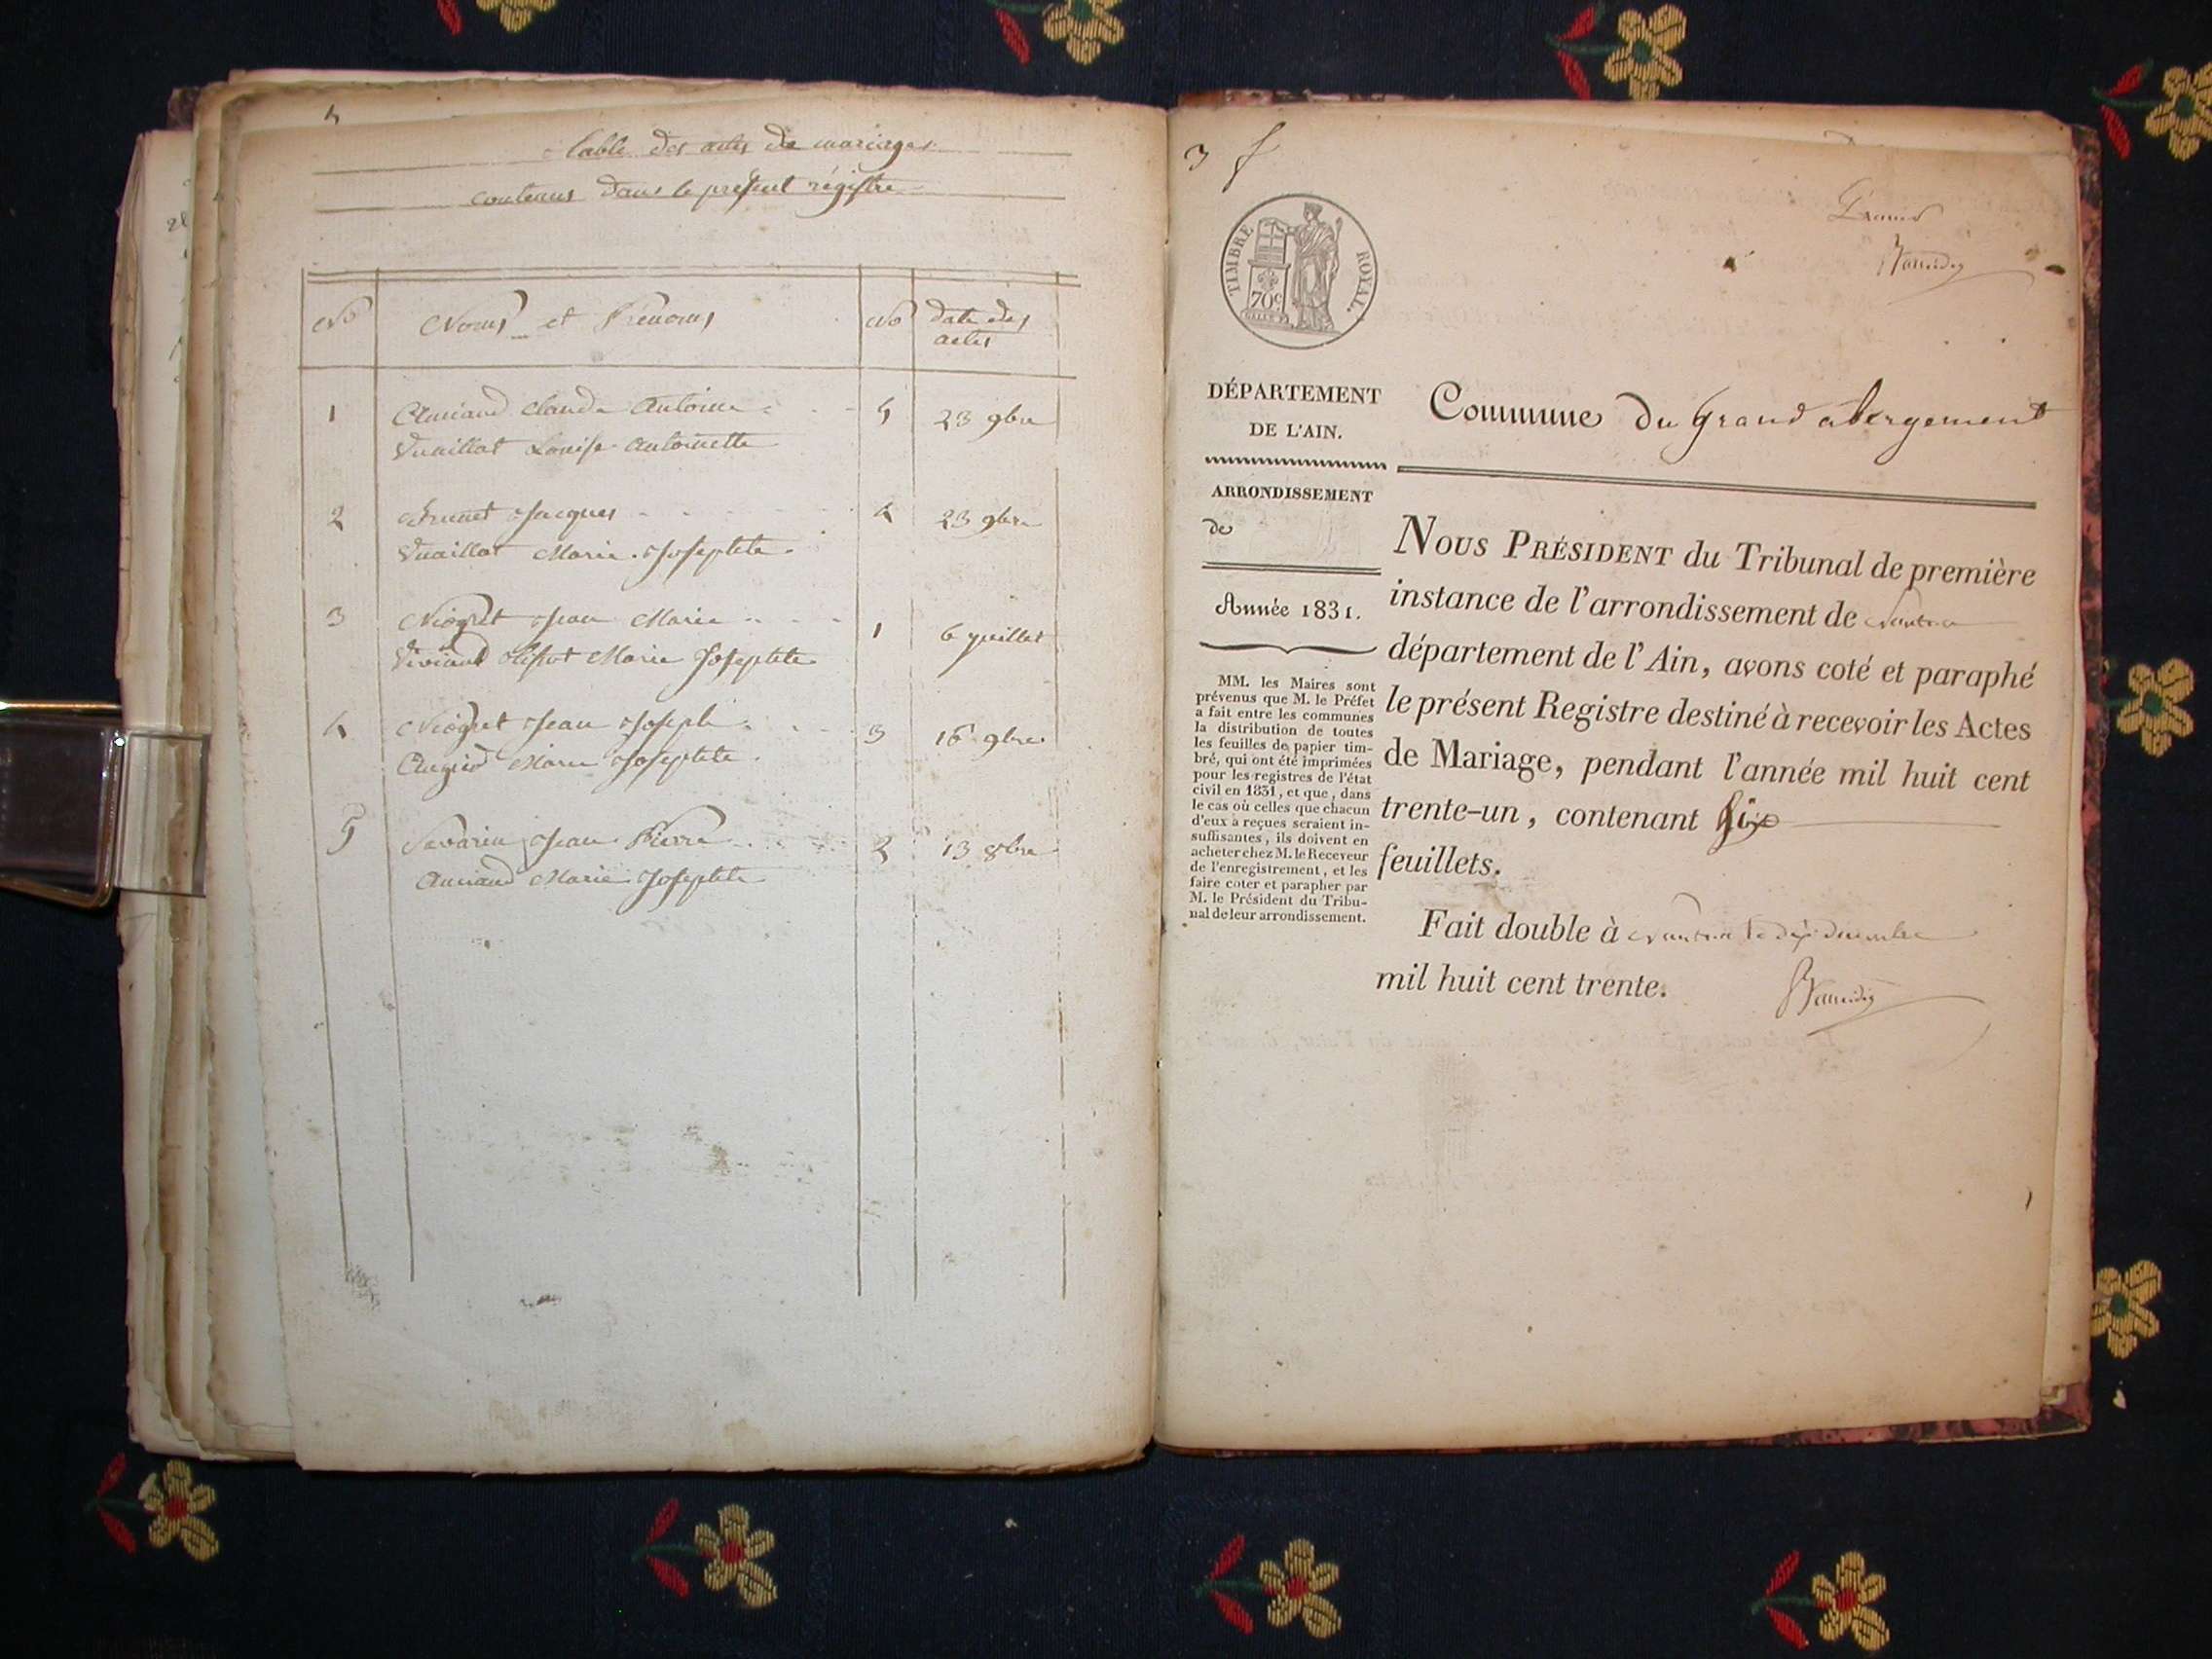 4
Table des actes de mariages
contenus dans le present régistre
No Noms et Prénoms No date des
actes
1 Claude Antoine 5 23 9bre
Vuaillat Louise Antoinette
2 Brunet Jacques 4 23 9bre
Vuaillat Marie Josephte
3 Niogret Jean Marie 1 6 juillet
Marie Josephte
4 Niogret Jean Joseph 3 16 9bre
Marie Josephte
5 Savarin Jean Pierre 2 13 8bre
Marie Josephte
3 f
TIMBRE ROYAL.
70c
DÉPARTEMENT
DE L'AIN.
Commune Du grand abergement
ARRONDISSEMENT
de
Année 1831.
MM. les Maires sont
prévenus que M. le Préfet
a fait entre les communes
la distribution de toutes
les feuilles de papier tim-
bré, qui ont été imprimées
pour les registres de l'état
civil en 1831, et que, dans
le cas où celles que chacun
d'eux a reçues seraient in-
suffisantes, ils doivent en
acheter chez M. le Receveur
de l'enregistrement, et les
faire coter et parapher par
M. le Président du Tribu-
nal de leur arrondissement.
NOUS PRÉSIDENT du Tribunal de première
instance de l'arrondissement de Nantua
département de l'Ain, avons coté et paraphé
le présent Registre destiné à recevoir les Actes
de Mariage, pendant l'année mil huit cent
trente-un, contenant Six
feuillets.
Fait double à Nantua le dix décembre
mil huit cent trente.